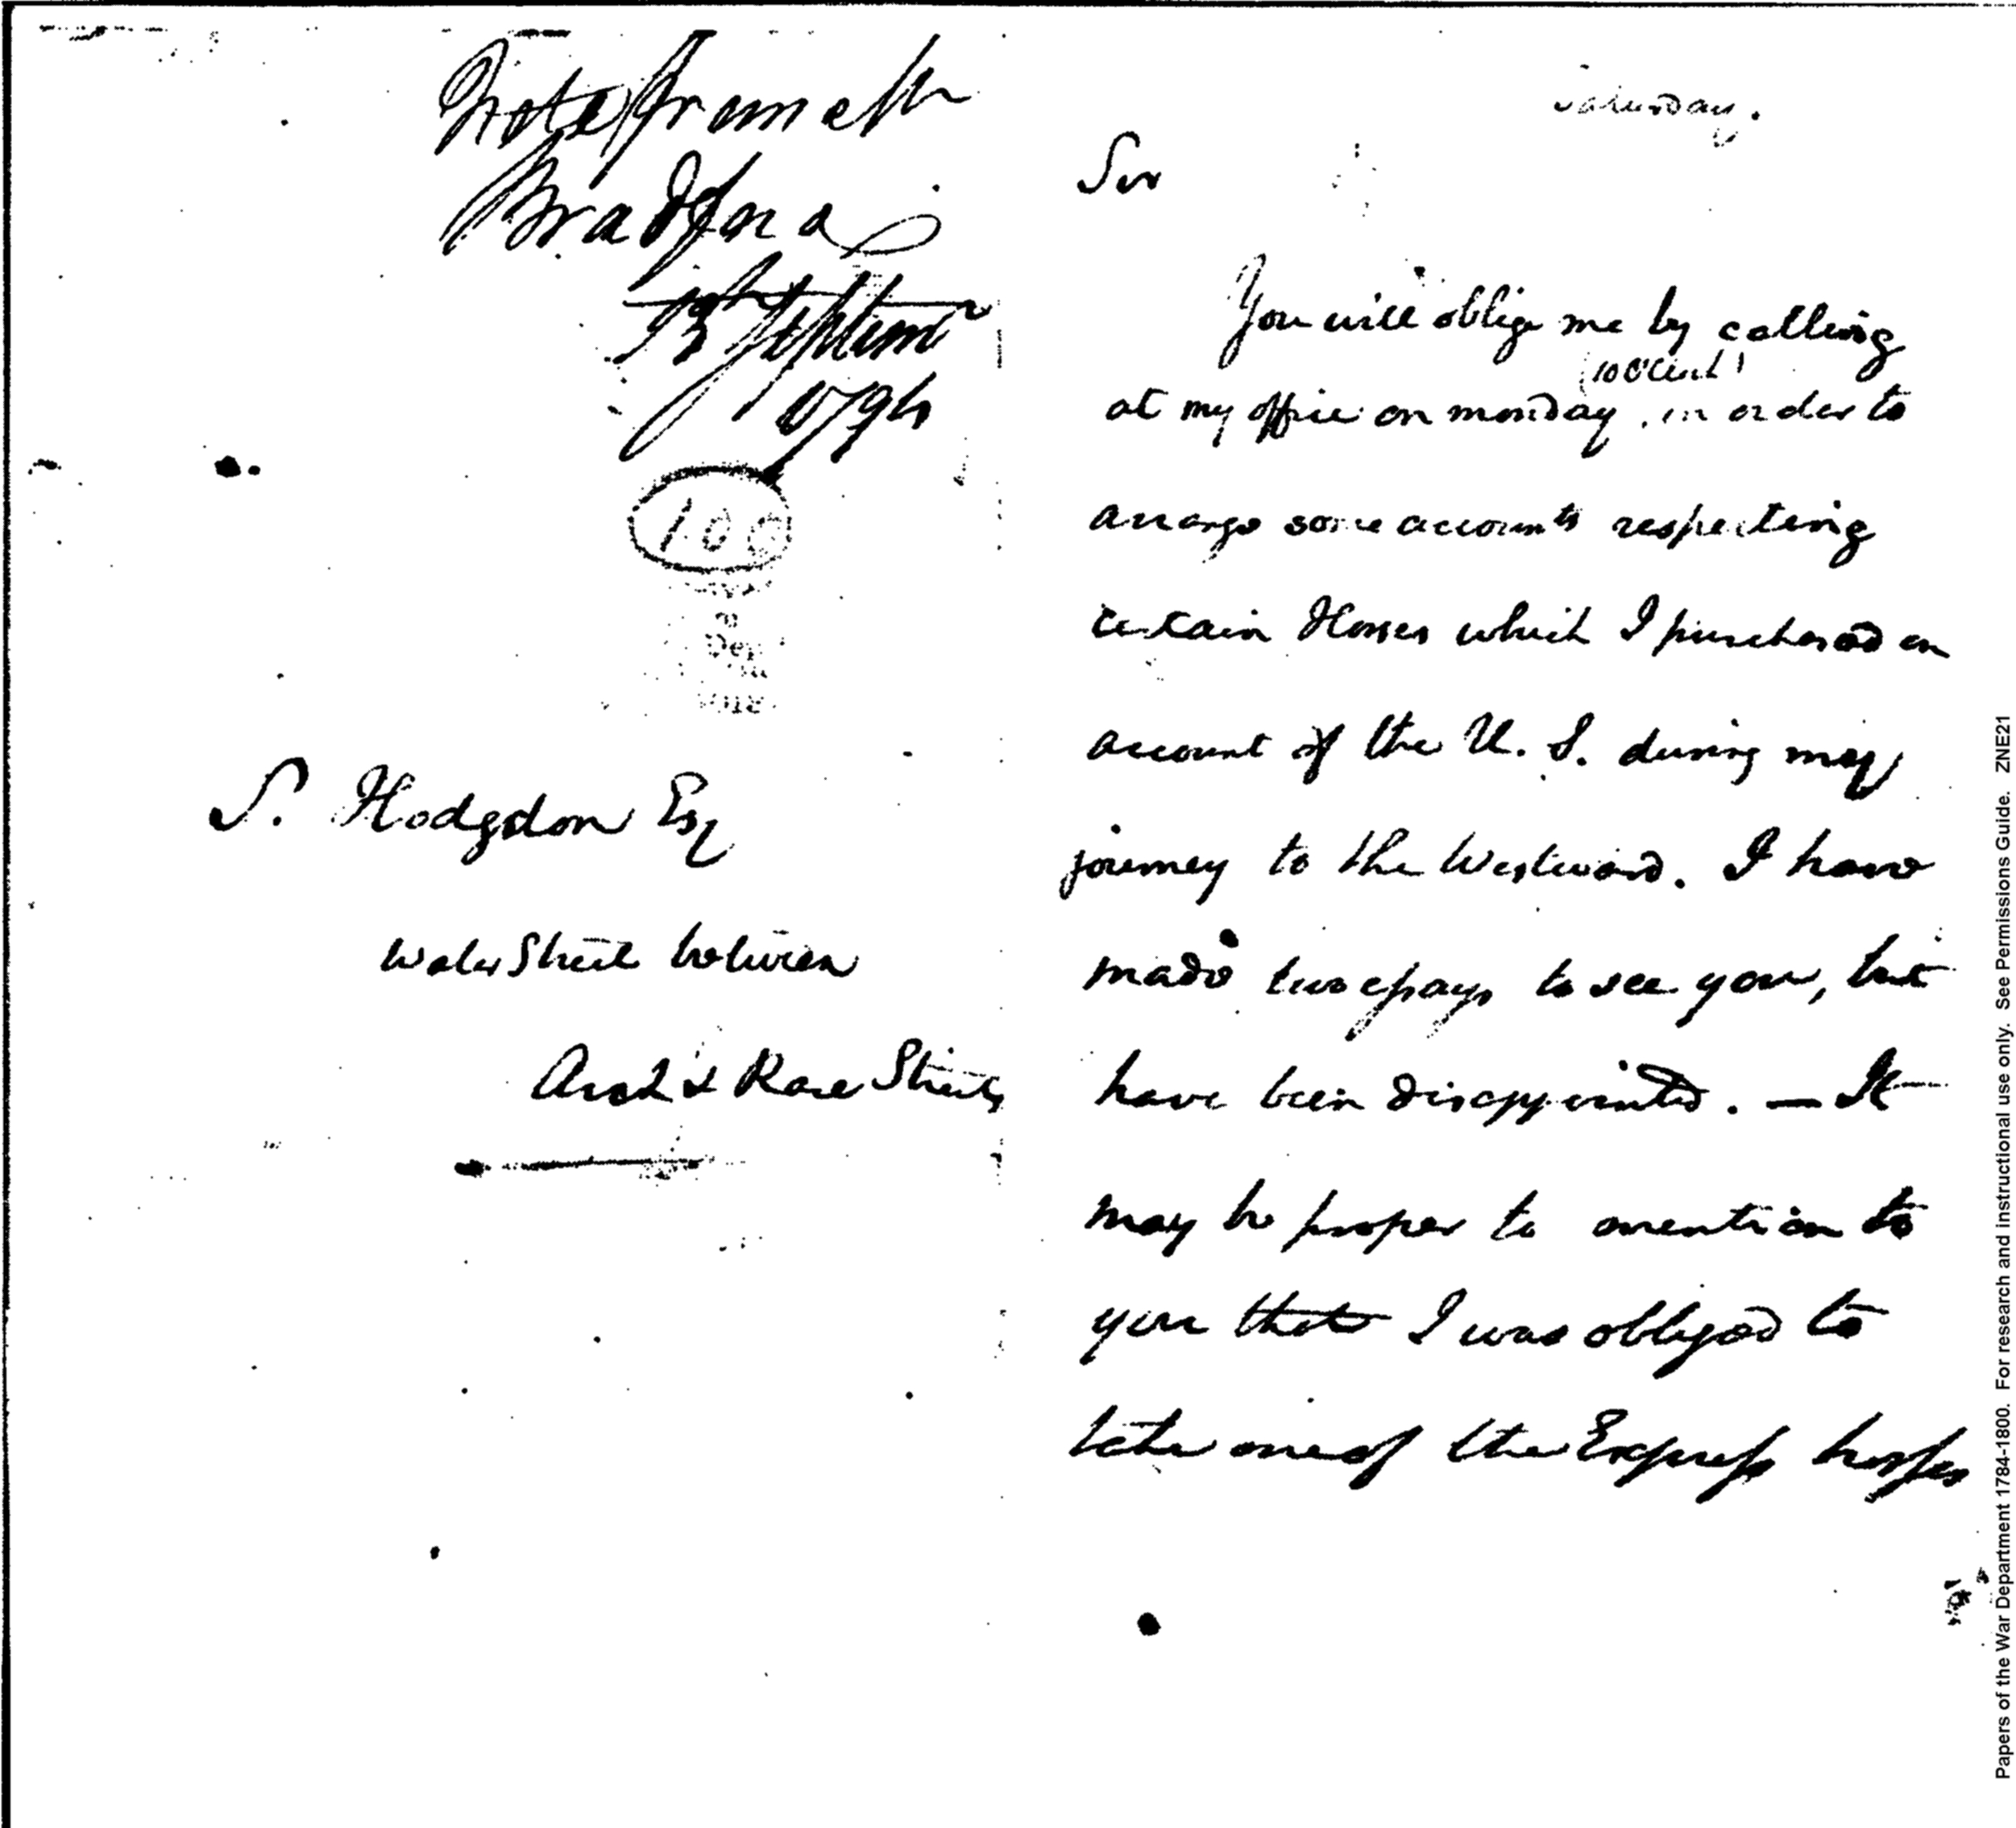 Note from Mr
Bradford
13 Septem
1794
100
S. Hodgdon Esq
Water Street between
Arch & Race Streets
Saturday.
Sir
You will oblige me by calling
(10 oClock)
at my office on monday, in order to
arrange some accounts respecting
certain Horses which I purchased on
account of the U. S. during my
journey to the Westward. I have
made two essays to see you, but
have been disappointed. — It
may be proper to mention to
you that I was obliged to
take one of the Express horses
Papers of the War Department 1784-1800. For research and instructional use only. See Permissions Guide. ZNE21